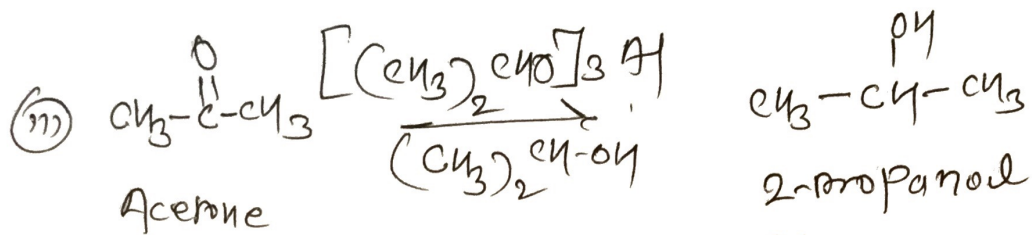 (iii) CH3-C(=O)-CH3 [(CH3)2CHO]3 Al / (CH3)2CH-OH → CH3-CH(OH)-CH3
Acetone 2-propanol